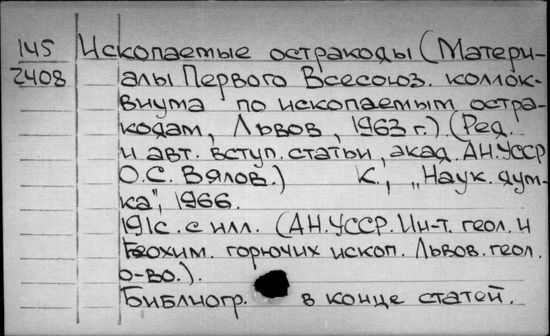 145 Ископаемые остракоды (Матери-
2408 алы Первого Всесоюз. коллок-
виума по ископаемым остра-
кодам, Львов, 1963 г.) (Ред.
и авт. вступ. статьи, акад. АН.УССР
О.С. Вялов.) К., „Наук. дум-
ка", 1966.
191с. с илл. (АН.УССР. Ин-т. геол. и
Геохим. горючих ископ. Львов. геол.
о-во.).
Библиогр. в конце статей.